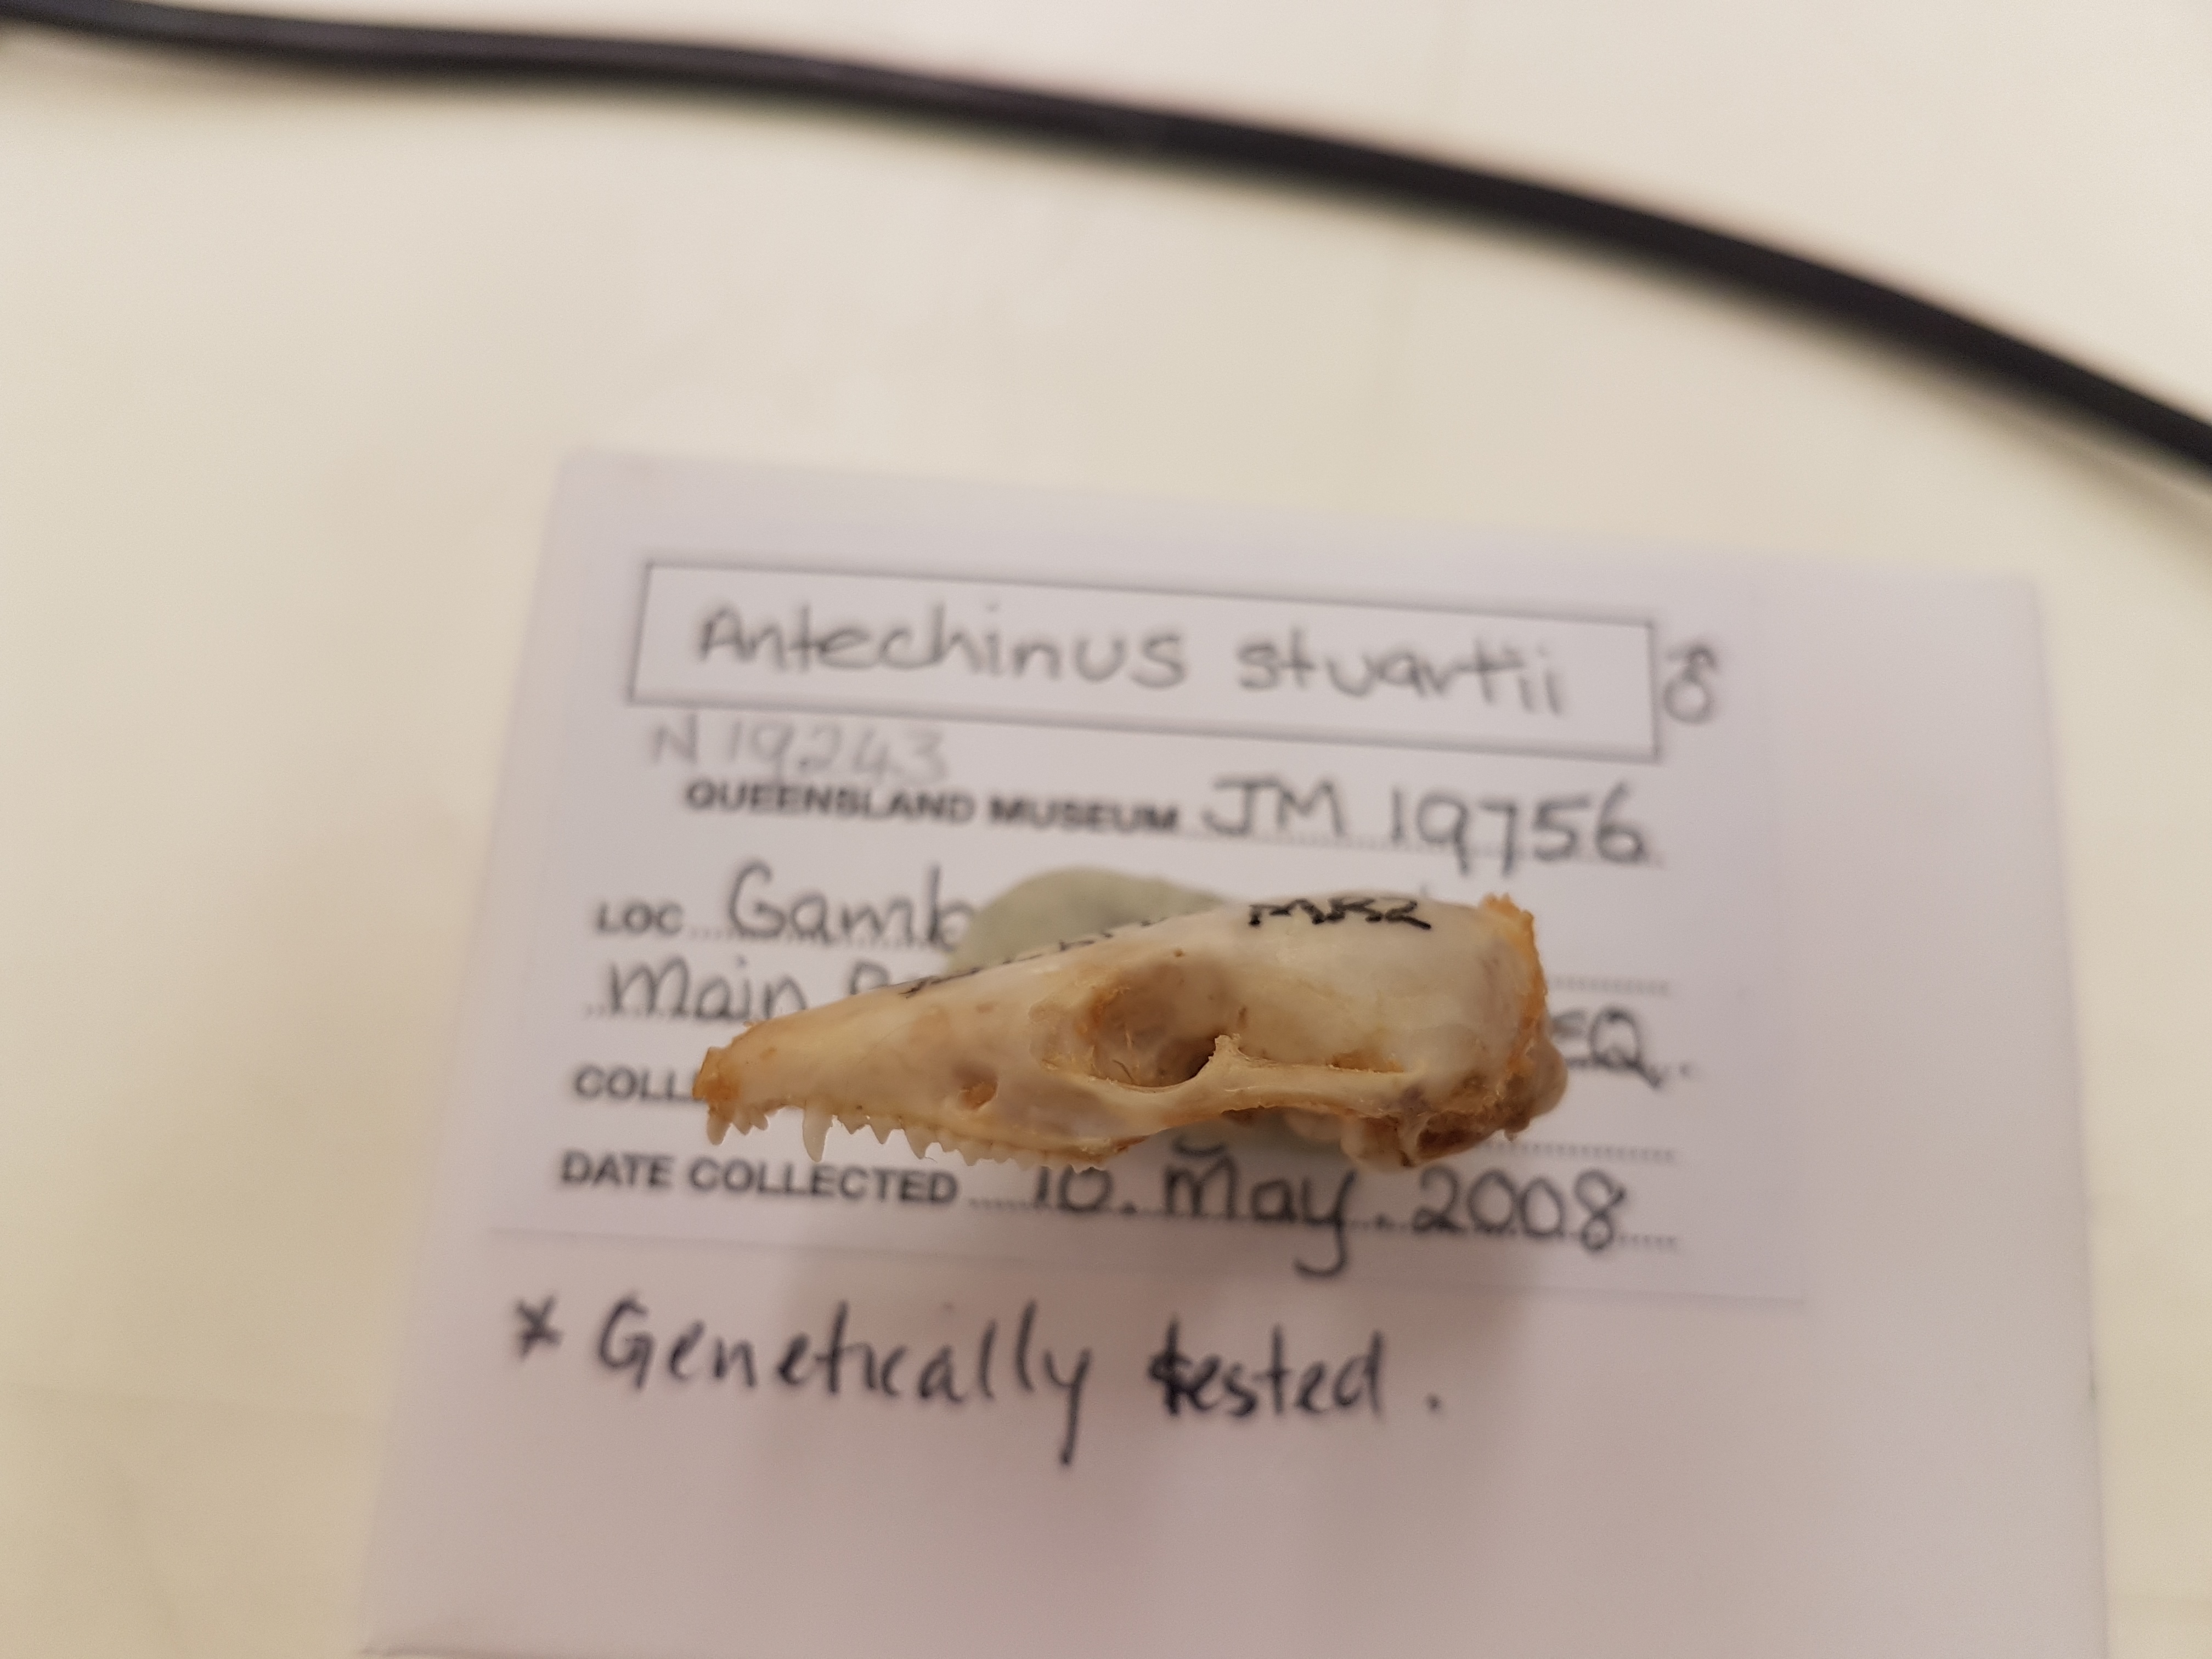 Antechinus stuartii ♂
N 19243
QUEENSLAND MUSEUM JM 19756
LOC
Main
DATE COLLECTED 10. May 2008
* Genetically tested.